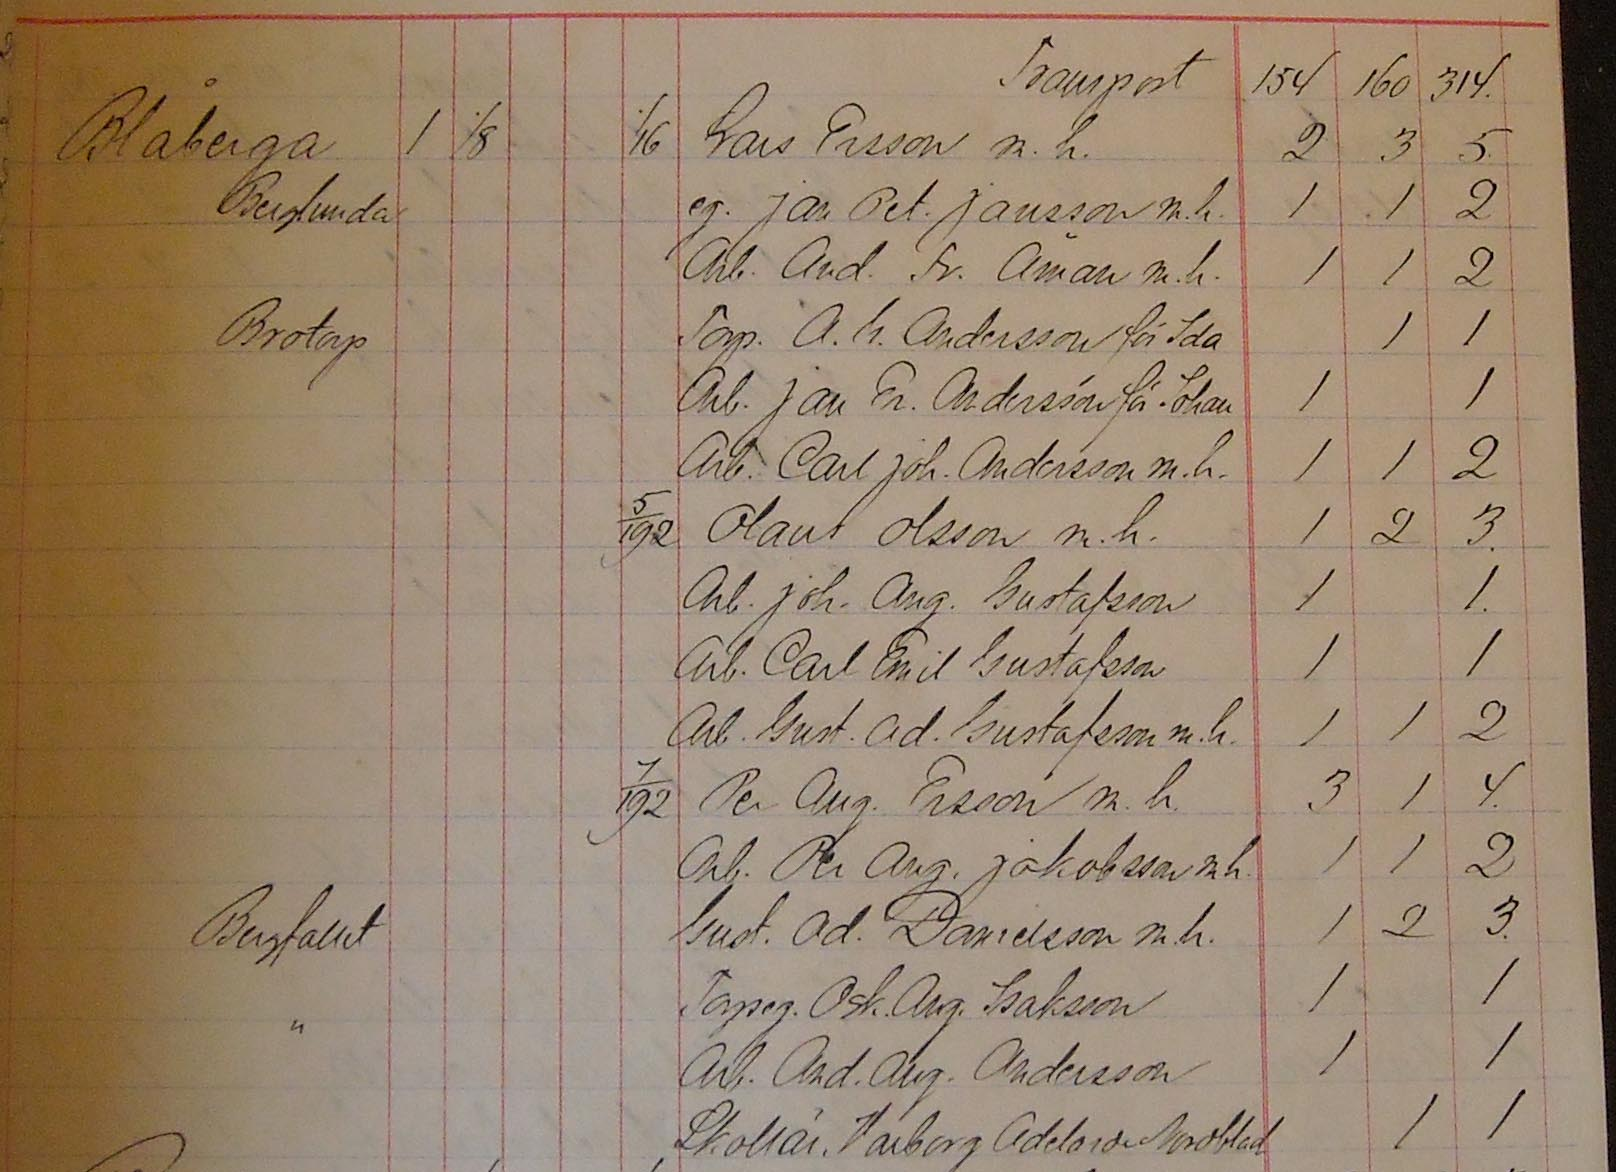 Transport 154 160 314.
Blåberga 1 1/8 1/16 Lars Ersson m. h. 2 3 5.
Berglunda eg. Jan Pet. Jansson m.h. 1 1 2
Arb. And. Fr. Åman m.h. 1 1 2
Brotorp Torp. A. G. Andersson för Ida 1 1
Arb. Jan Er. Andersson för Johan 1 1
Arb. Carl Joh. Andersson m.h. 1 1 2
5/192 Olaus Olsson m.h. 1 2 3.
Arb. Joh. Aug. Gustafsson 1 1.
Arb. Carl Emil Gustafsson 1 1
Arb. Gust. Ad. Gustafsson m.h. 1 1 2
7/192 Per Aug. Ersson m.h. 3 1 4.
Arb. Per Aug. Jakobsson m.h. 1 1 2
Bergfallet Gust. Ad. Danielsson m.h. 1 2 3.
" Torpeg. Osk. Aug. Isaksson 1 1
Arb. And. Aug. Andersson 1 1
Skollär. Nordblad 1 1